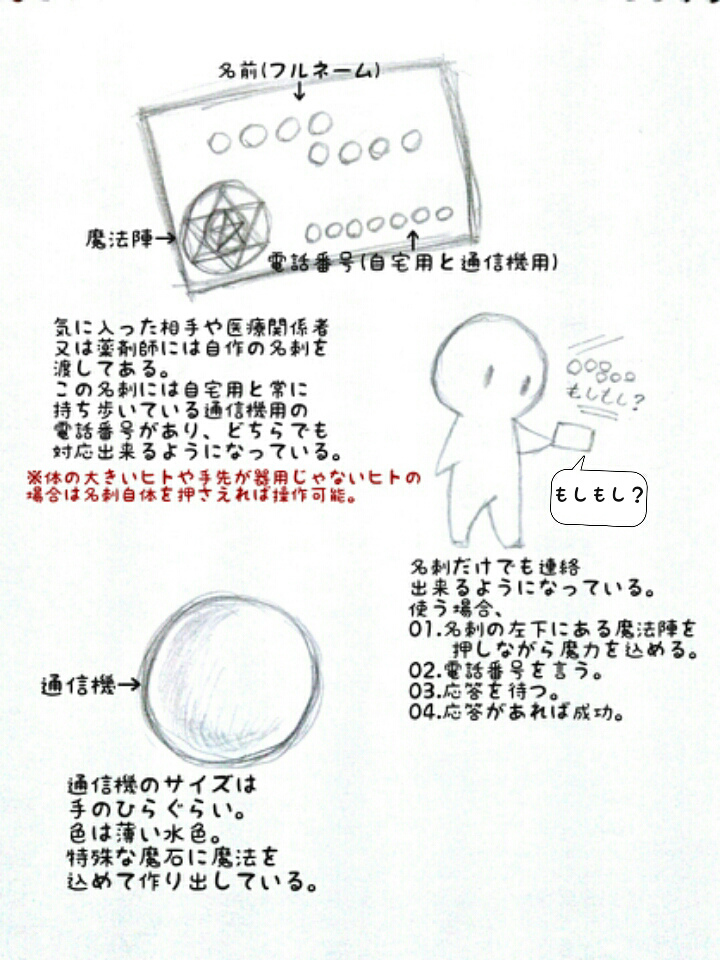 名前(フルネーム)
↓
○○○○
○○○○
魔法陣→
○○○○○○○○
↑
電話番号(自宅用と通信機用)
気に入った相手や医療関係者
又は薬剤師には自作の名刺を
渡してある。
この名刺には自宅用と常に
持ち歩いている通信機用の
電話番号があり、どちらでも
対応出来るようになっている。
※体の大きいヒトや手先が器用じゃないヒトの
場合は名刺自体を押さえれば操作可能。
○○○○○
もしもし?
もしもし?
名刺だけでも連絡
出来るようになっている。
使う場合、
01.名刺の左下にある魔法陣を
押しながら魔力を込める。
02.電話番号を言う。
03.応答を待つ。
04.応答があれば成功。
通信機→
通信機のサイズは
手のひらぐらい。
色は薄い水色。
特殊な魔石に魔法を
込めて作り出している。